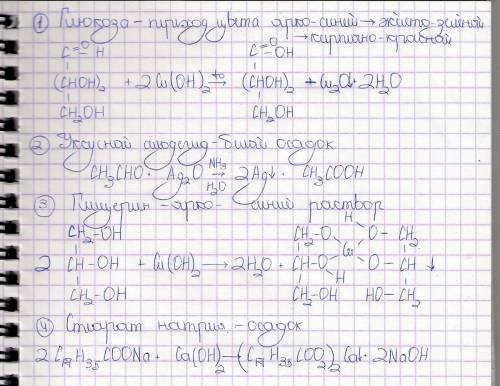 ① Глюкоза – переход цвета ярко-синий → жёлто-зелёный
→ кирпично-красный
C=O H C=OH
(CHOH)2 + 2 Cu(OH)2 t° → (CHOH)2 + Cu2O↓ + 2H2O
CH2OH CH2OH
② Уксусный альдегид – белый осадок
CH3CHO + Ag2O NH3 → H2O 2Ag↓ + CH3COOH
③ Глицерин – ярко-синий раствор
CH2-OH CH2-O H O-CH2
2 CH-OH + Cu(OH)2 → 2H2O + CH-O Cu O-CH ↓
CH2-OH CH2-OH H HO-CH2
④ Стеарат натрия – осадок
2 C17H35COONa + Ca(OH)2 → (C17H35COO)2Ca↓ + 2NaOH